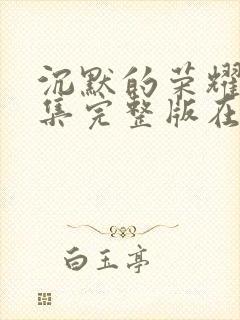 沉默的荣耀
集完整版在
白玉亭